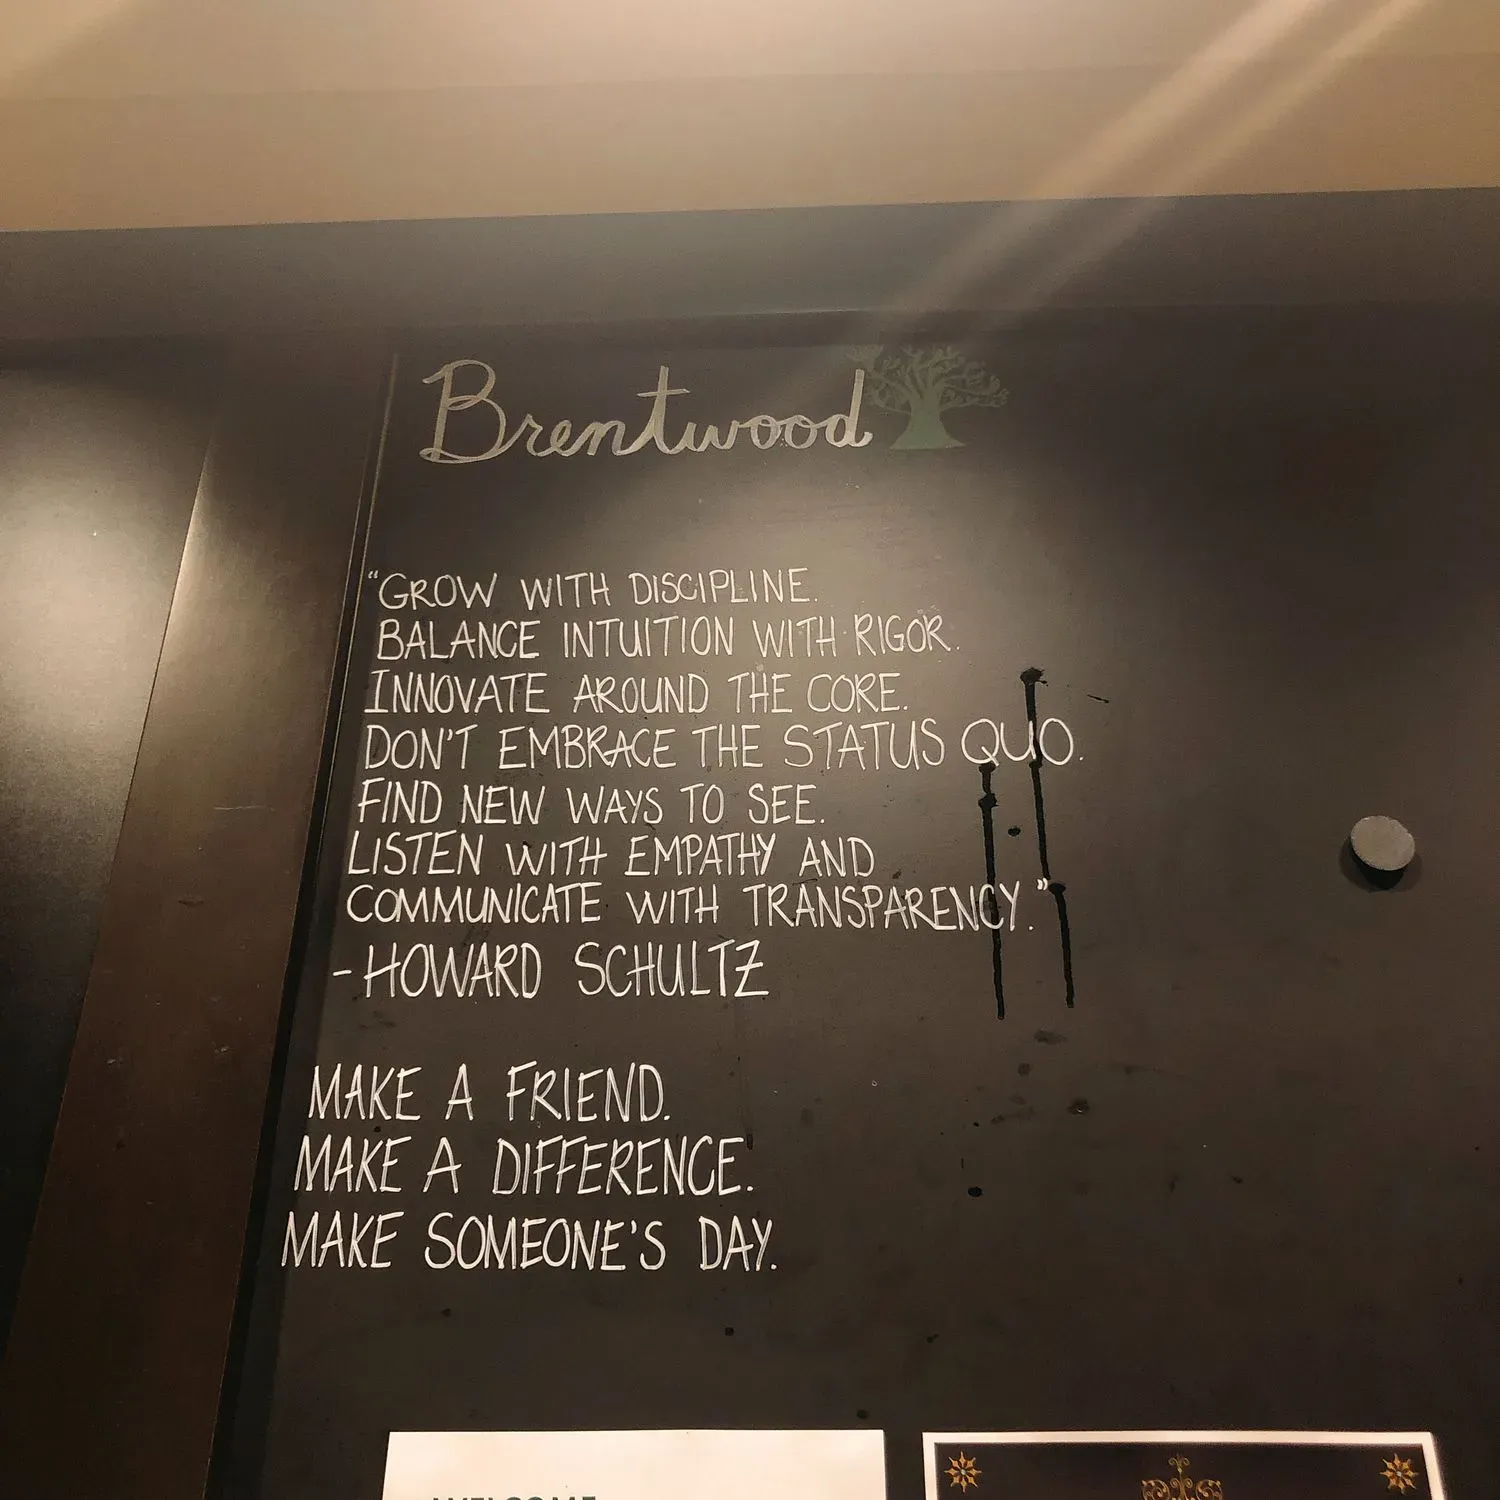 Brentwood
"GROW WITH DISCIPLINE.
BALANCE INTUITION WITH RIGOR.
INNOVATE AROUND THE CORE.
DON'T EMBRACE THE STATUS QUO.
FIND NEW WAYS TO SEE.
LISTEN WITH EMPATHY AND
COMMUNICATE WITH TRANSPARENCY."
-HOWARD SCHULTZ
MAKE A FRIEND.
MAKE A DIFFERENCE.
MAKE SOMEONE'S DAY.
WELCOME